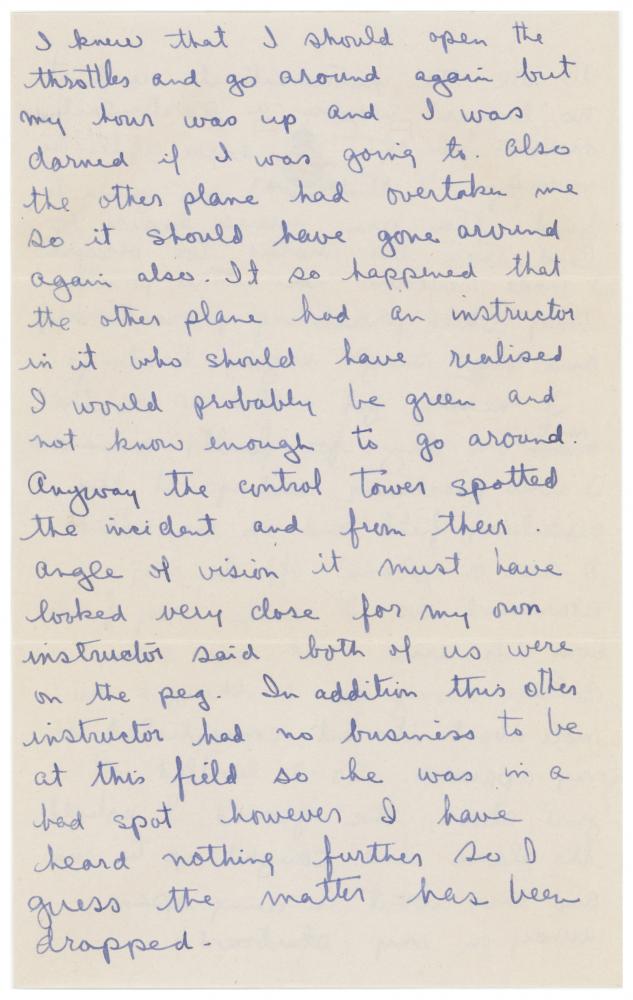 I knew that I should open the
throttles and go around again but
my hour was up and I was
darned if I was going to. Also
the other plane had overtaken me
so it should have gone around
again also. It so happened that
the other plane had an instructor
in it who should have realised
I would probably be green and
not know enough to go around.
Anyway the control tower spotted
the incident and from their
angle of vision it must have
looked very close for my own
instructor said both of us were
on the peg. In addition this other
instructor had no business to be
at this field so he was in a
bad spot however I have
heard nothing further so I
guess the matter has been
dropped.